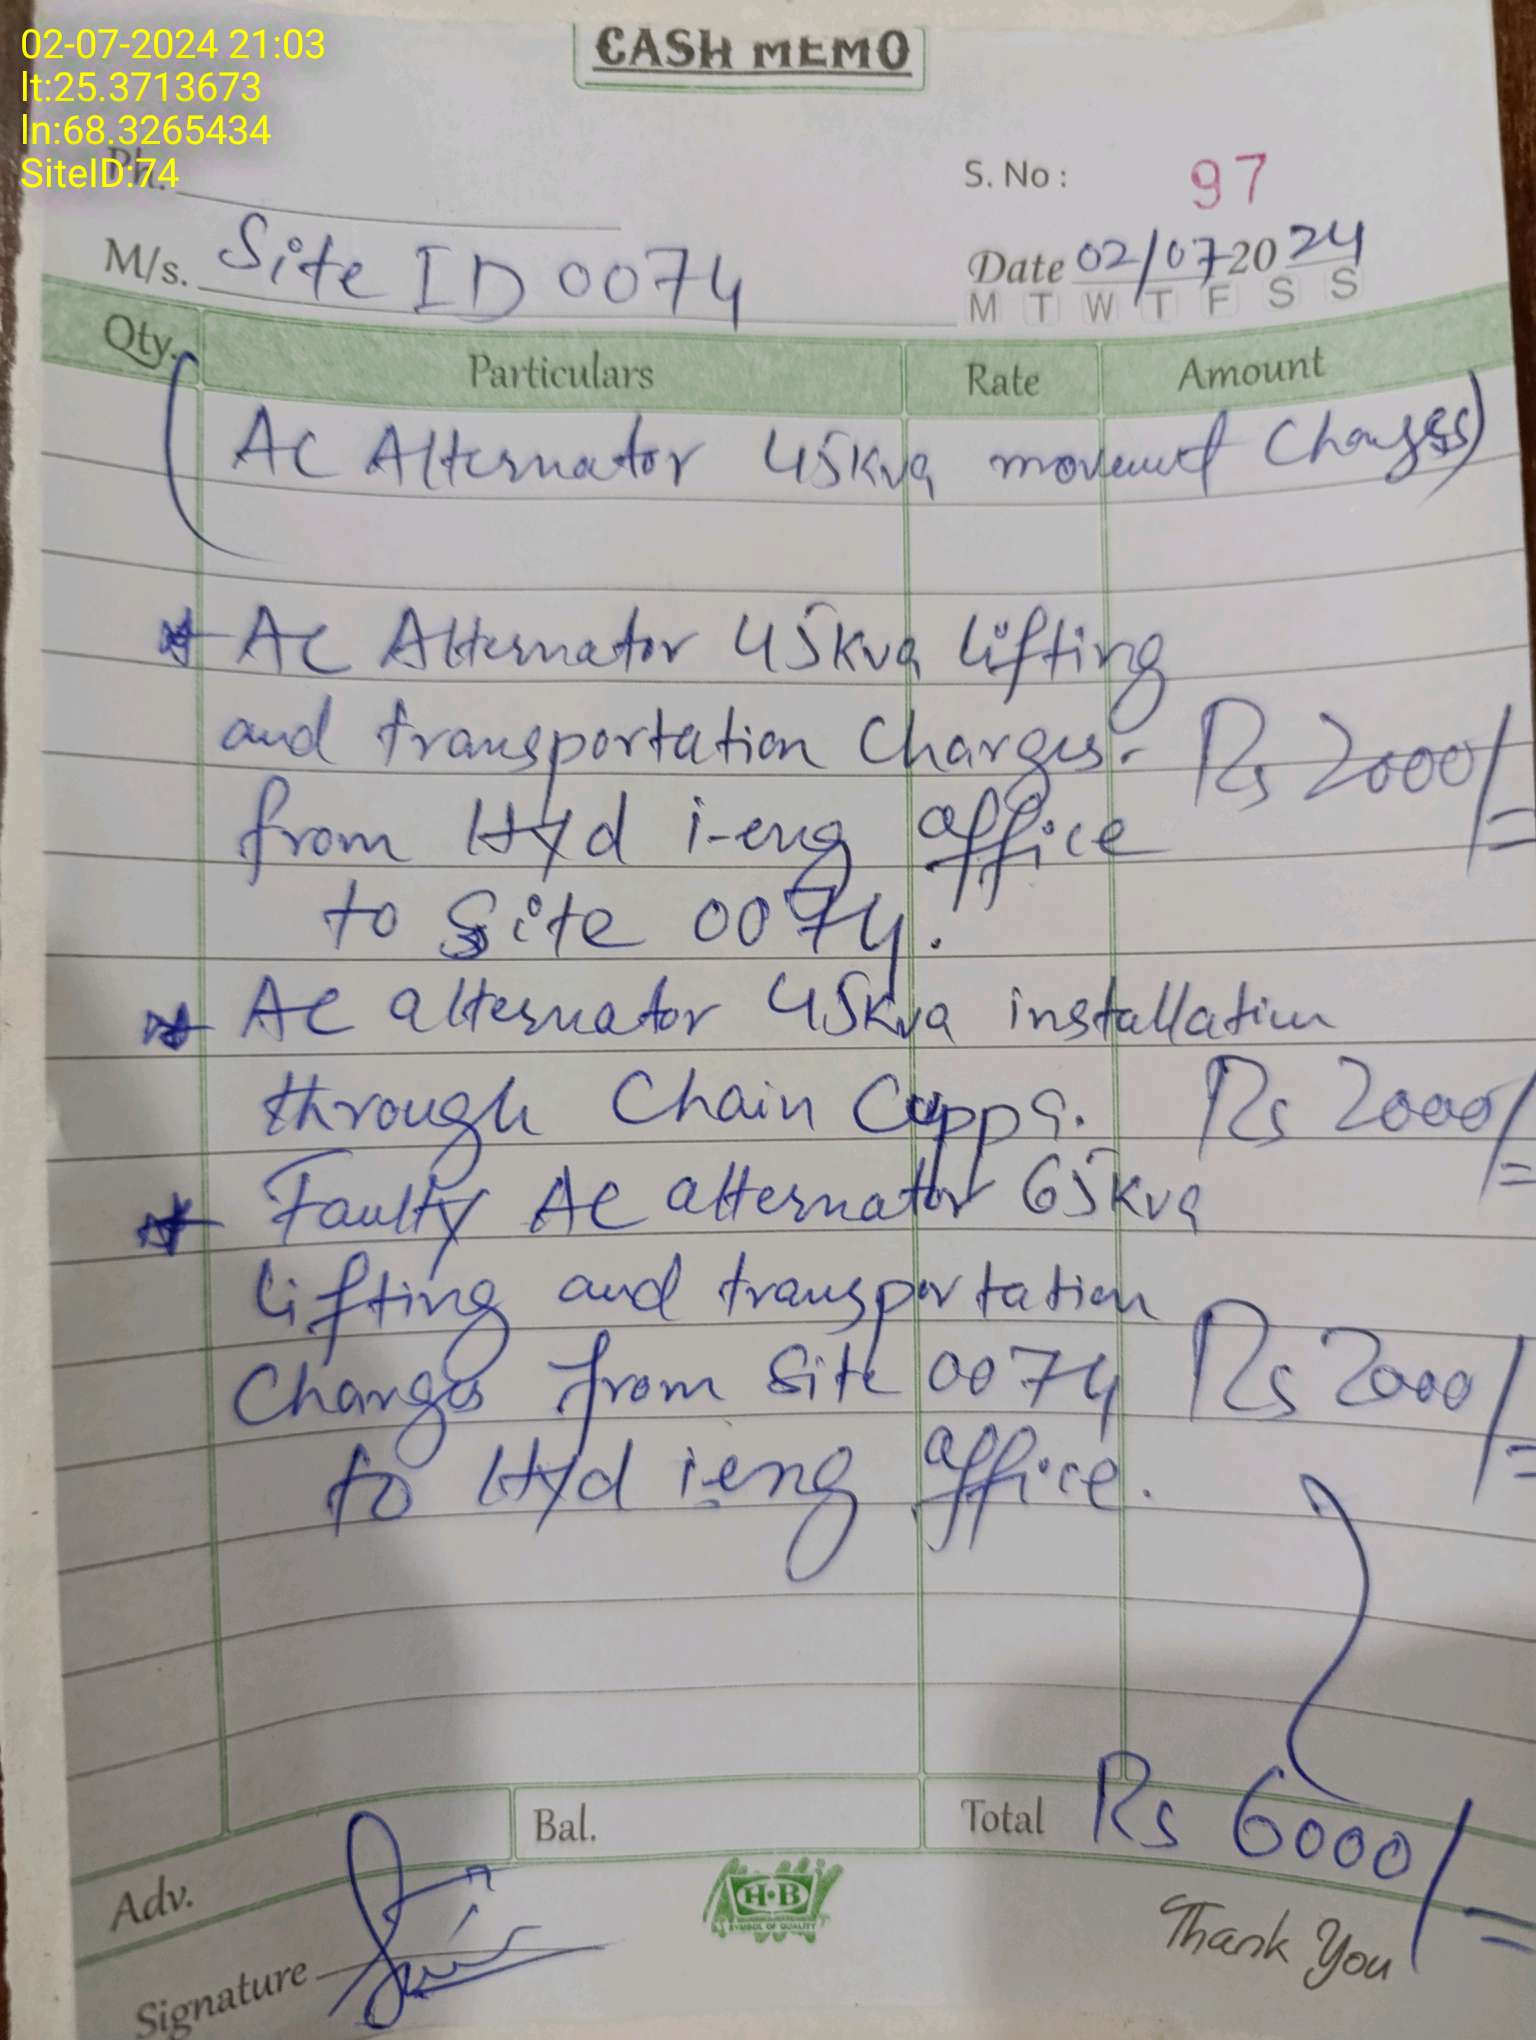 02-07-2024 21:03
lt:25.3713673
ln:68.3265434
SiteID:74
CASH MEMO
Ph.
S. No : 97
M/s. Site ID 0074
Date 02/07 2024
M T W T F S S
Qty. Particulars Rate Amount
(AC Alternator 45Kva movement Charges)
AC Alternator 45Kva lifting
and transportation Charges. Rs 2000/=
from Hyd i-eng office
to Site 0074.
AC alternator 45Kva installation
through Chain Cuppa. Rs 2000/=
Faulty AC alternator 65Kva
lifting and transportation
Charges from Site 0074 Rs 2000/=
to Hyd i-eng office.
Adv. Bal. Total Rs 6000/=
H·B
SYMBOL OF QUALITY
Thank You
Signature